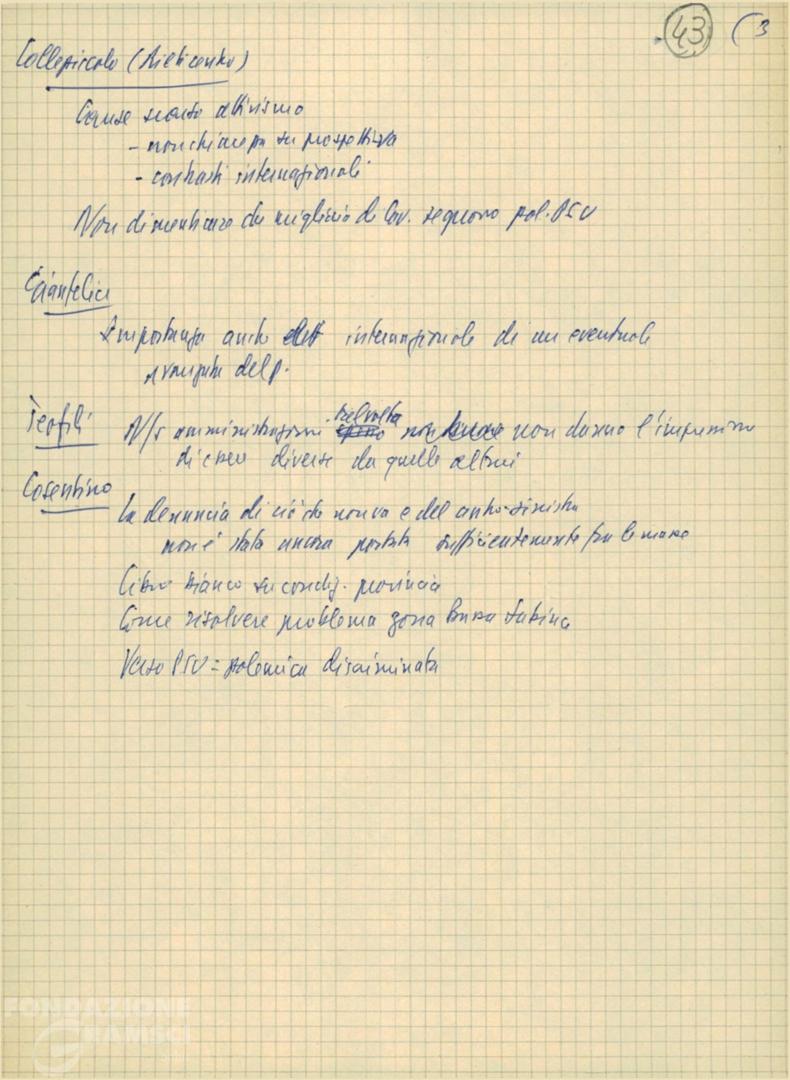 43 (3
Collepiccolo (Rieti centro)
Cause scarso attivismo
- non chiarezza su prospettiva
- contrasti internazionali
Non dimenticare che migliaia di lav. seguono pol. PSU
Gianfelici
Importanza anche internazionale di un eventuale
avanzata del p.
Teofili
N/s amministrazioni talvolta non danno l'impressione
di essere diverse da quelle altrui
Cosentino
La denuncia di ciò che non va e del centro-sinistra
non è stata ancora portata sufficientemente fra le masse
Libro bianco su condiz. provincia
Come risolvere problema zona Bassa Sabina
Verso PSU = polemica discriminata
FONDAZIONE
GRAMSCI